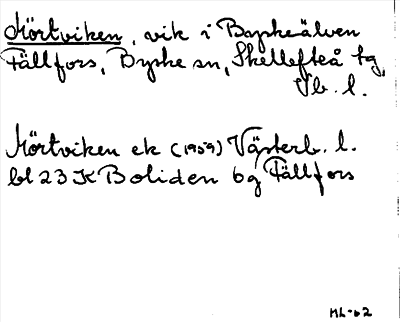 Mörtviken, vik i Byskeälven
Fällfors, Byske sn, Skellefteå tg,
Vb. l.
Mörtviken ek (1959) Västerb. l.
bl 23 K Boliden bg Fällfors
ML-62